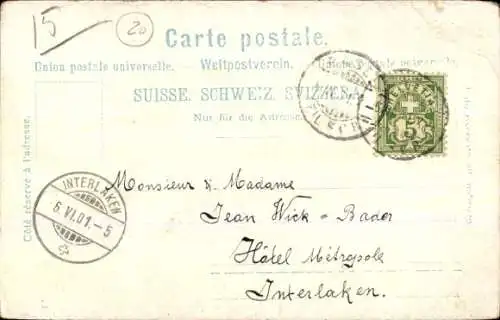 15
20
Carte postale.
Union postale universelle. — Weltpostverein. —
SUISSE. SCHWEIZ. SVIZZERA
Nur für die Adresse.
HELVETIA
5
Côté réservé à l'adresse.
INTERLAKEN
6.VI.01.-5
Monsieur & Madame
Jean Wick-Bader
Hôtel Métropole
Interlaken.